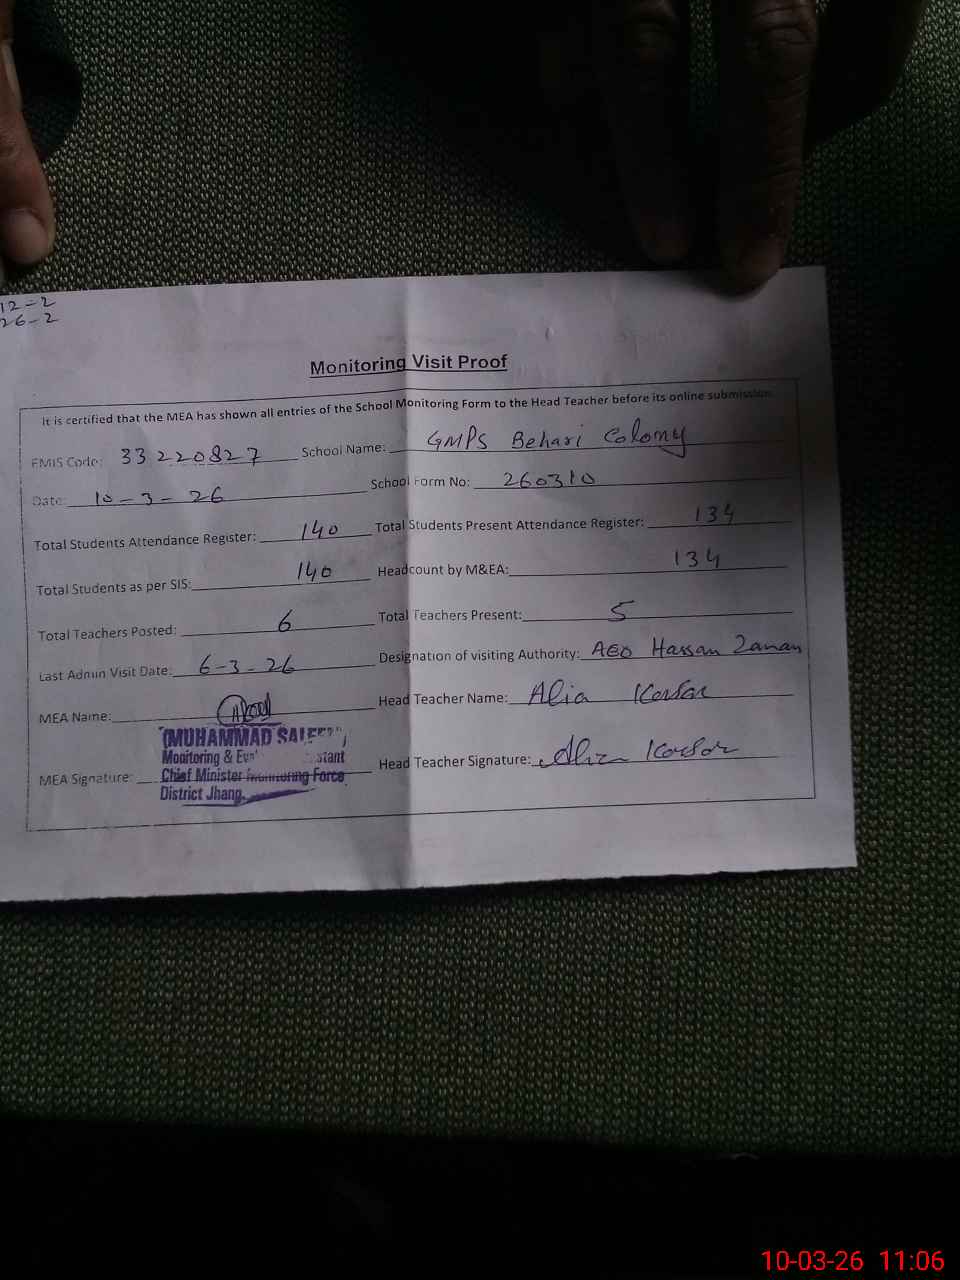 12-2
26-2
Monitoring Visit Proof
It is certified that the MEA has shown all entries of the School Monitoring Form to the Head Teacher before its online submission.
EMIS Code: 33220827 School Name: GMPS Behari Colony
Date: 10-3-26 School Form No: 260310
Total Students Attendance Register: 140 Total Students Present Attendance Register: 134
Total Students as per SIS: 140 Headcount by M&EA: 134
Total Teachers Posted: 6 Total Teachers Present: 5
Last Admin Visit Date: 6-3-26 Designation of visiting Authority: AEO Hassan Zaman
MEA Name: Head Teacher Name: Alia
(MUHAMMAD
Monitoring &
MEA Signature: Head Teacher Signature: Alia
Chief Minister Monitoring Force
District Jhang.
10-03-26 11:06